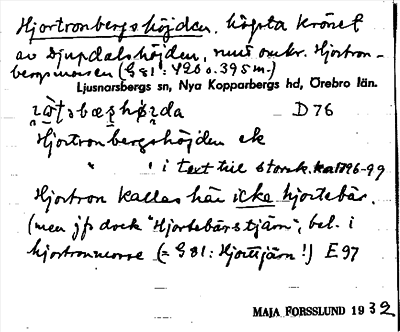 Hjortronbergshöjden, högsta krönet
av Djupdalshöjden, mitt omkr. Hjortron-
bergsmossen (G 81: 420 o. 395 m.)
Ljusnarsbergs sn, Nya Kopparbergs hd, Örebro län.
D 76
Hjortronbergshöjden ek
" " i text till storsk.ka 1796-99
Hjortron kallas här icke hjortebär.
(men jfr dock "Hjortebärstjärn", bel. i
hjortronmosse (= G 81: Hjorttjärn!) E 97
MAJA FORSSLUND 1932